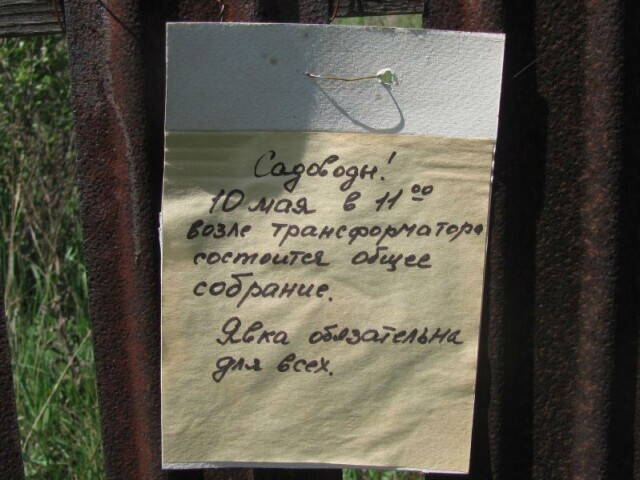 Садоводы!
10 мая в 11⁰⁰
возле трансформатора
состоится общее
собрание.
Явка обязательна
для всех.